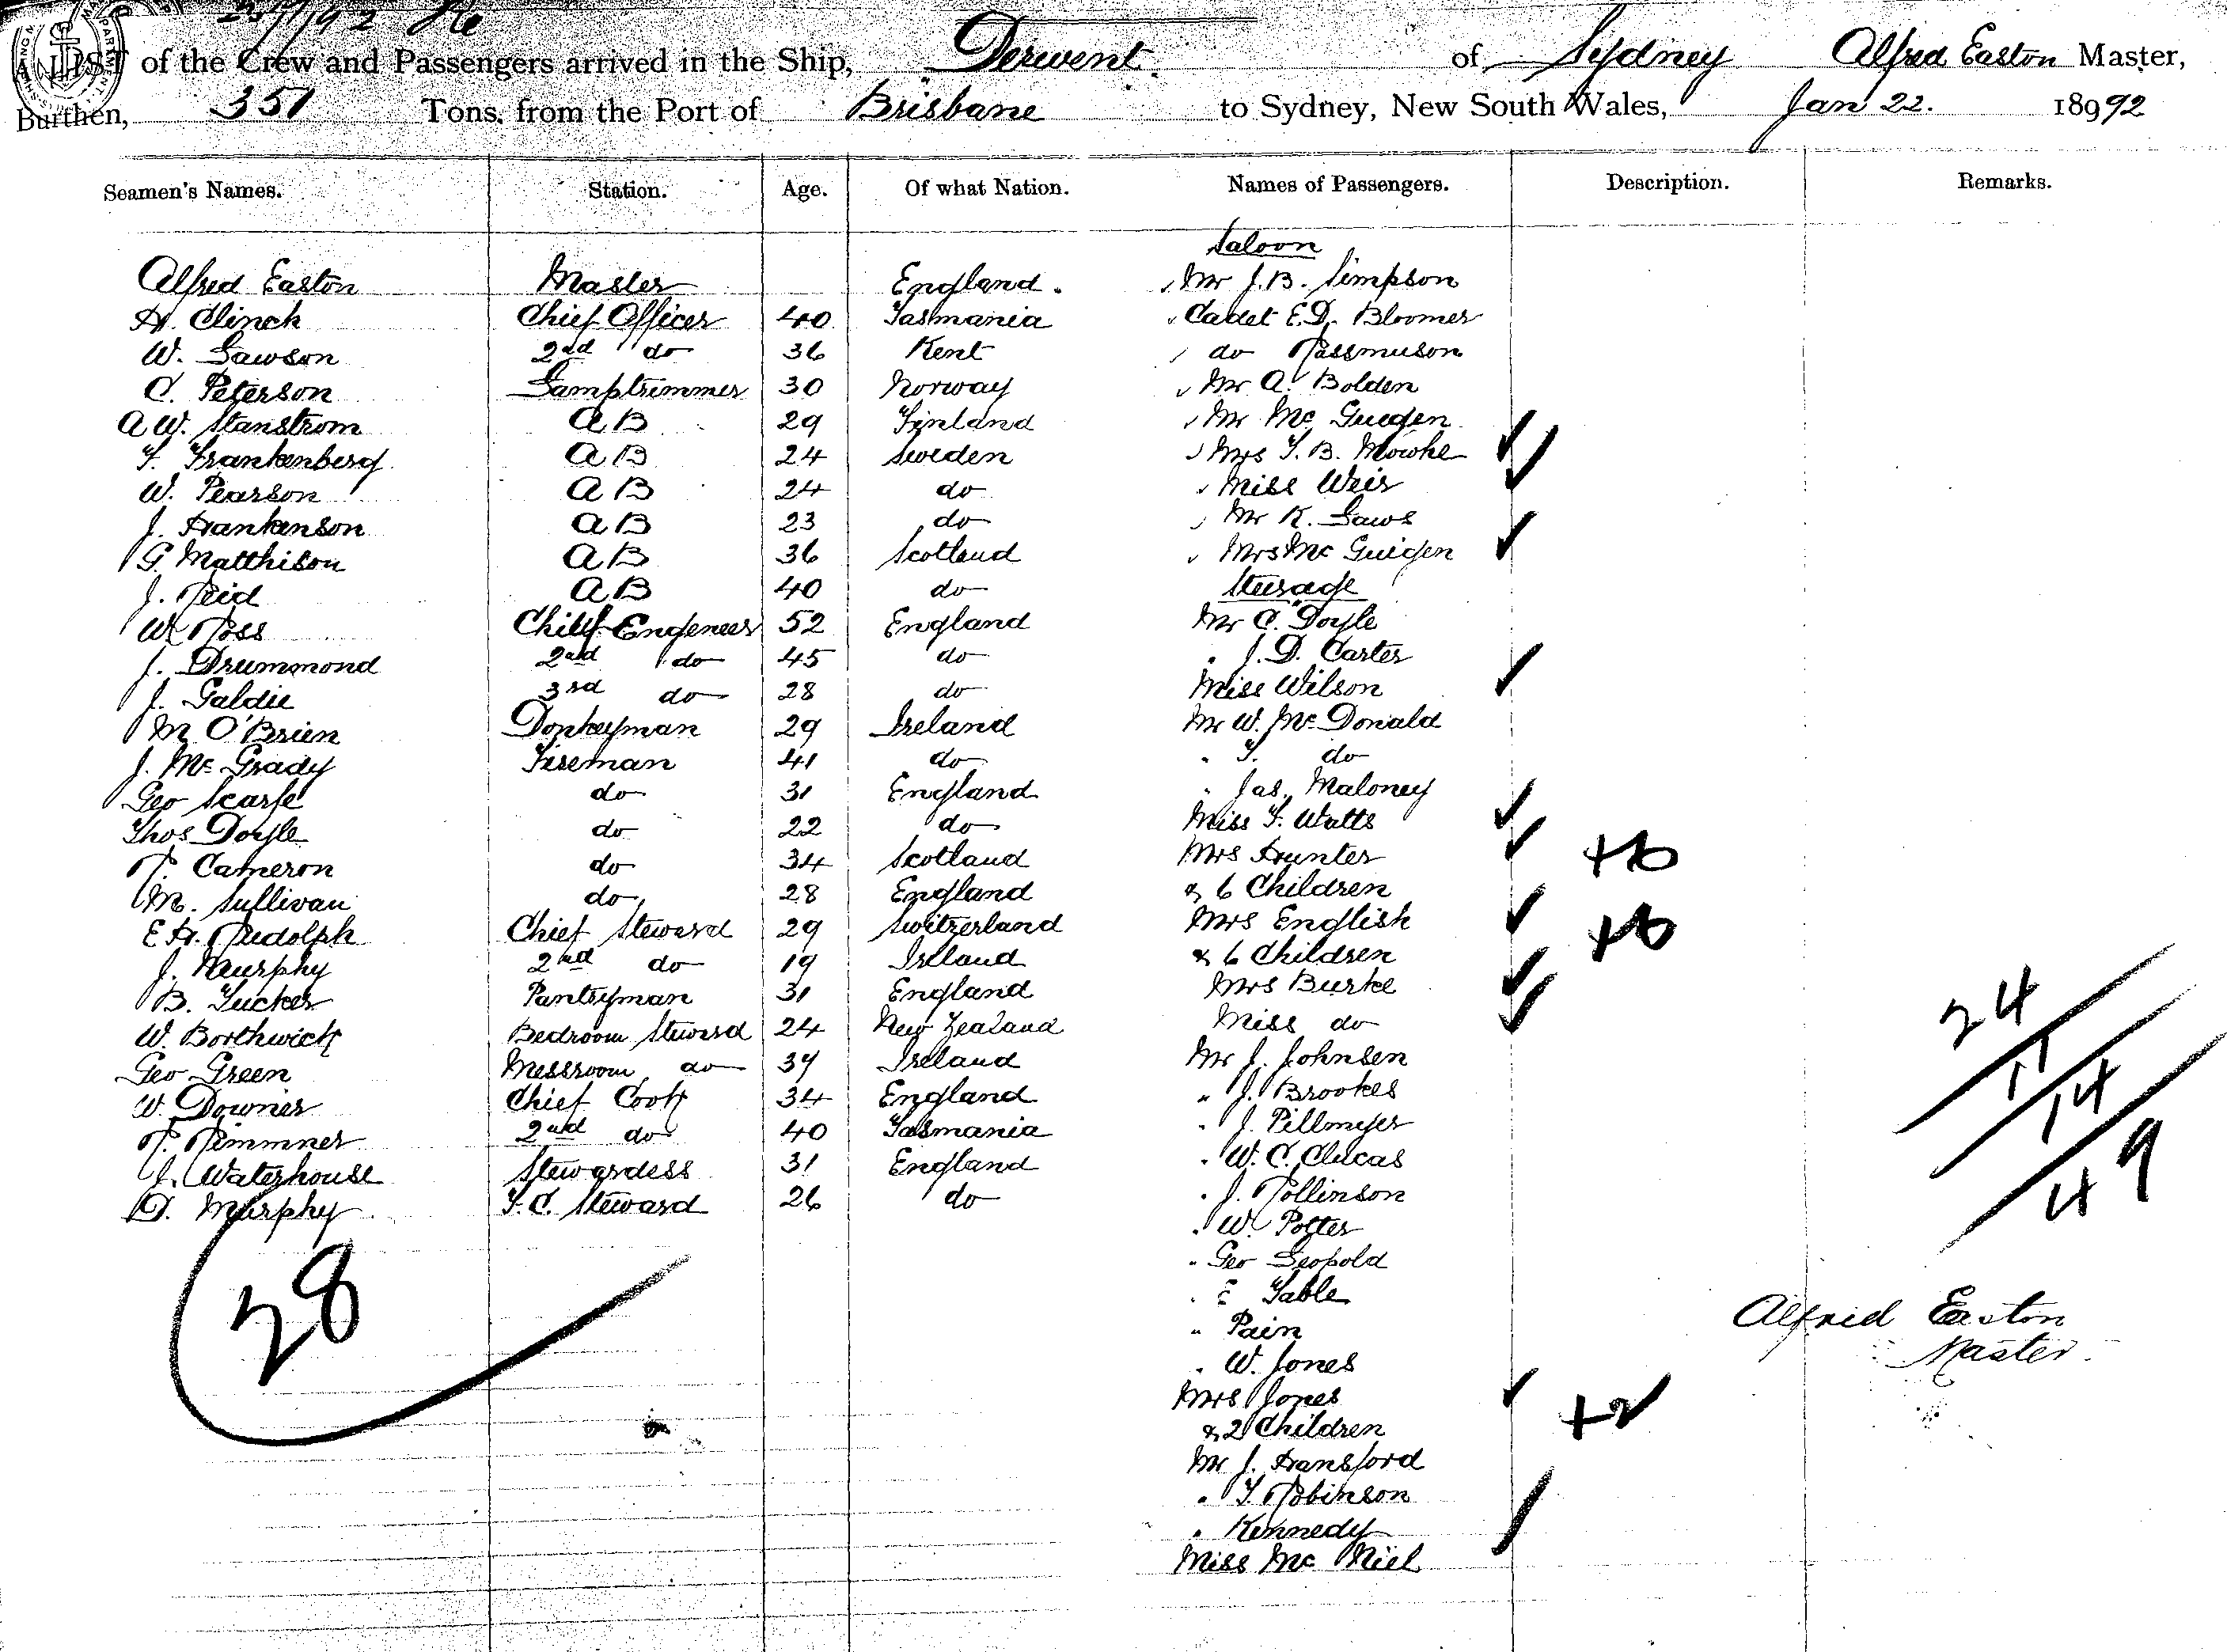 23/1/92
LIST of the Crew and Passengers arrived in the Ship, Derwent of Sydney Alfred Easton Master,
Burthen, 351 Tons, from the Port of Brisbane to Sydney, New South Wales, Jan 22. 18992
Seamen's Names. Station. Age. Of what Nation. Names of Passengers. Description. Remarks.
Saloon
Alfred Easton Master England. Mr J.B. Simpson
H. Clinch Chief Officer 40 Tasmania Cadet E.D. Bloomer
W. Lawson 2nd do 36 Kent do Rassmuson
C. Peterson Lamptrimmer 30 Norway Mr A. Bolden
A W. Stanstrom A B 29 Finland Mr Mc Guigen
F. Frankenberg A B 24 Sweden Mrs T. B.
W. Pearson A B 24 do Miss Weir
J. Hankenson A B 23 do Mr K. Laws
G. Matthison A B 36 Scotland Mrs Mc Guigen
J. Reid A B 40 do Steerage
W. Ross Chief Engeneer 52 England Mr C. Doyle
J. Drummond 2nd do 45 do " J. D. Carter
J. Galdie 3rd do 28 do Miss Wilson
M O'Brien Donkeyman 29 Ireland Mr W. Mc Donald
J. Mc Grady Fireman 41 do " T. do
Geo Scarfe do 31 England " Jas. Maloney
Thos Doyle do 22 do Miss F. Watts
R. Cameron do 34 Scotland Mrs Hunter
+6
M. Sullivan do 28 England & 6 Children
E H. Rudolph Chief Steward 29 Switzerland Mrs English
+6
J. Murphy 2nd do 19 Ireland & 6 Children
B. Tucker Pantryman 31 England Mrs Burke
W. Borthwick Bedroom Steward 24 New Zealand Miss do
24
Geo Green Messroom do 39 Ireland Mr J. Johnsen
11
W. Downer Chief Cook 34 England " J. Brookes
14
R. Rimmner 2nd do 40 Tasmania " J. Pillmyer
J. Waterhouse Stewardess 31 England " W. C. Clucas
49
D. Murphy F. C. Steward 26 do " J. Rollinson
" W. Potter
" Geo Leopold
28
" E Table
Alfred Easton
" Pain
Master.
" W. Jones
Mrs Jones
+2
& 2 Children
Mr J. Hansford
" T. Robinson
" Kennedy
Miss Mc Niel